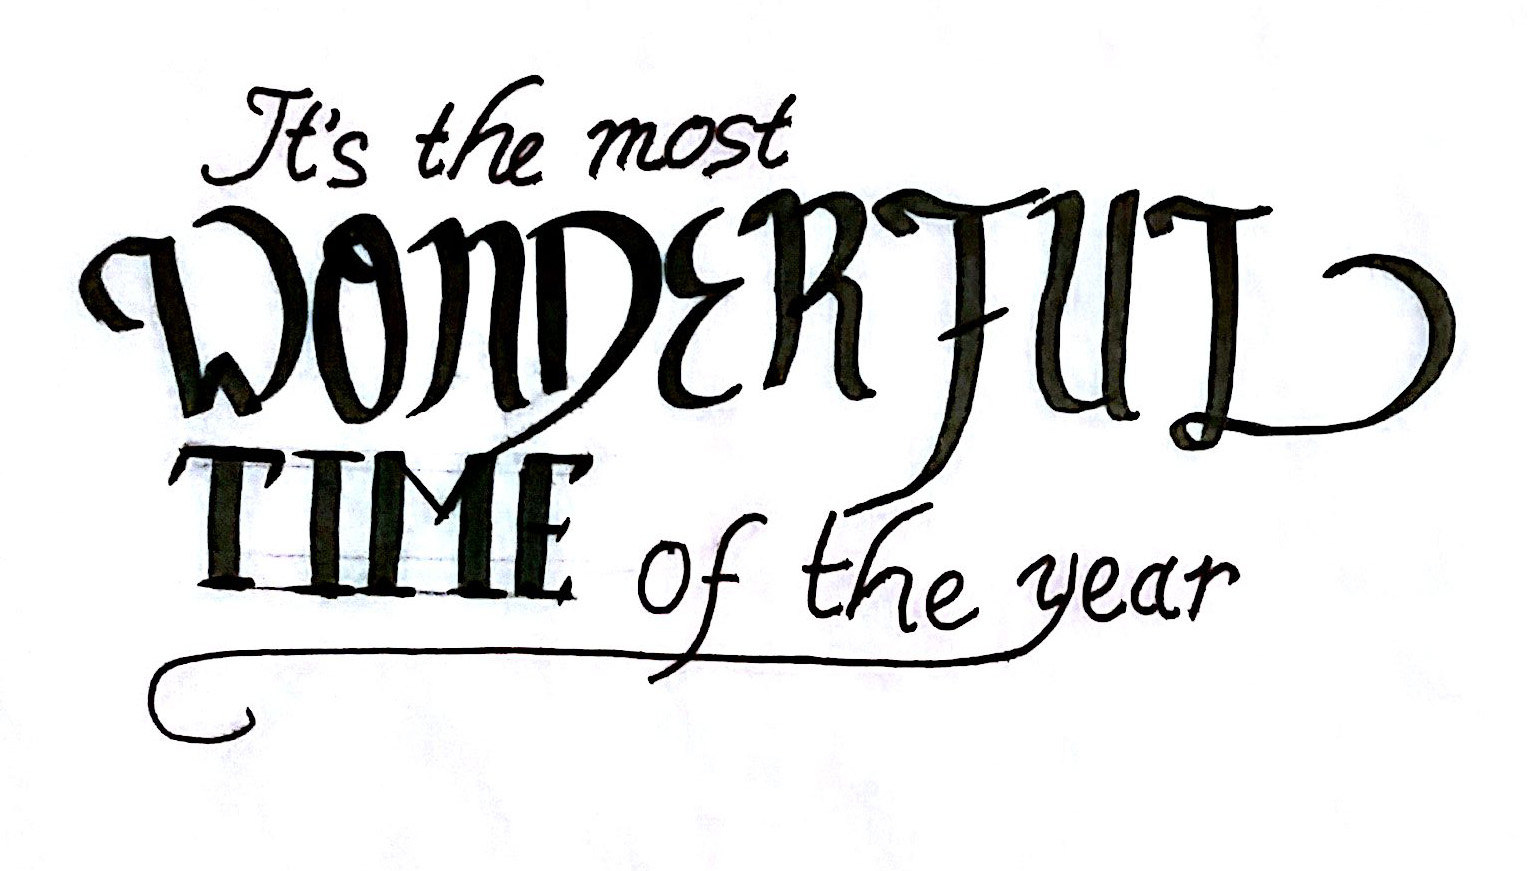 It's the most
WONDERFUL
TIME of the year